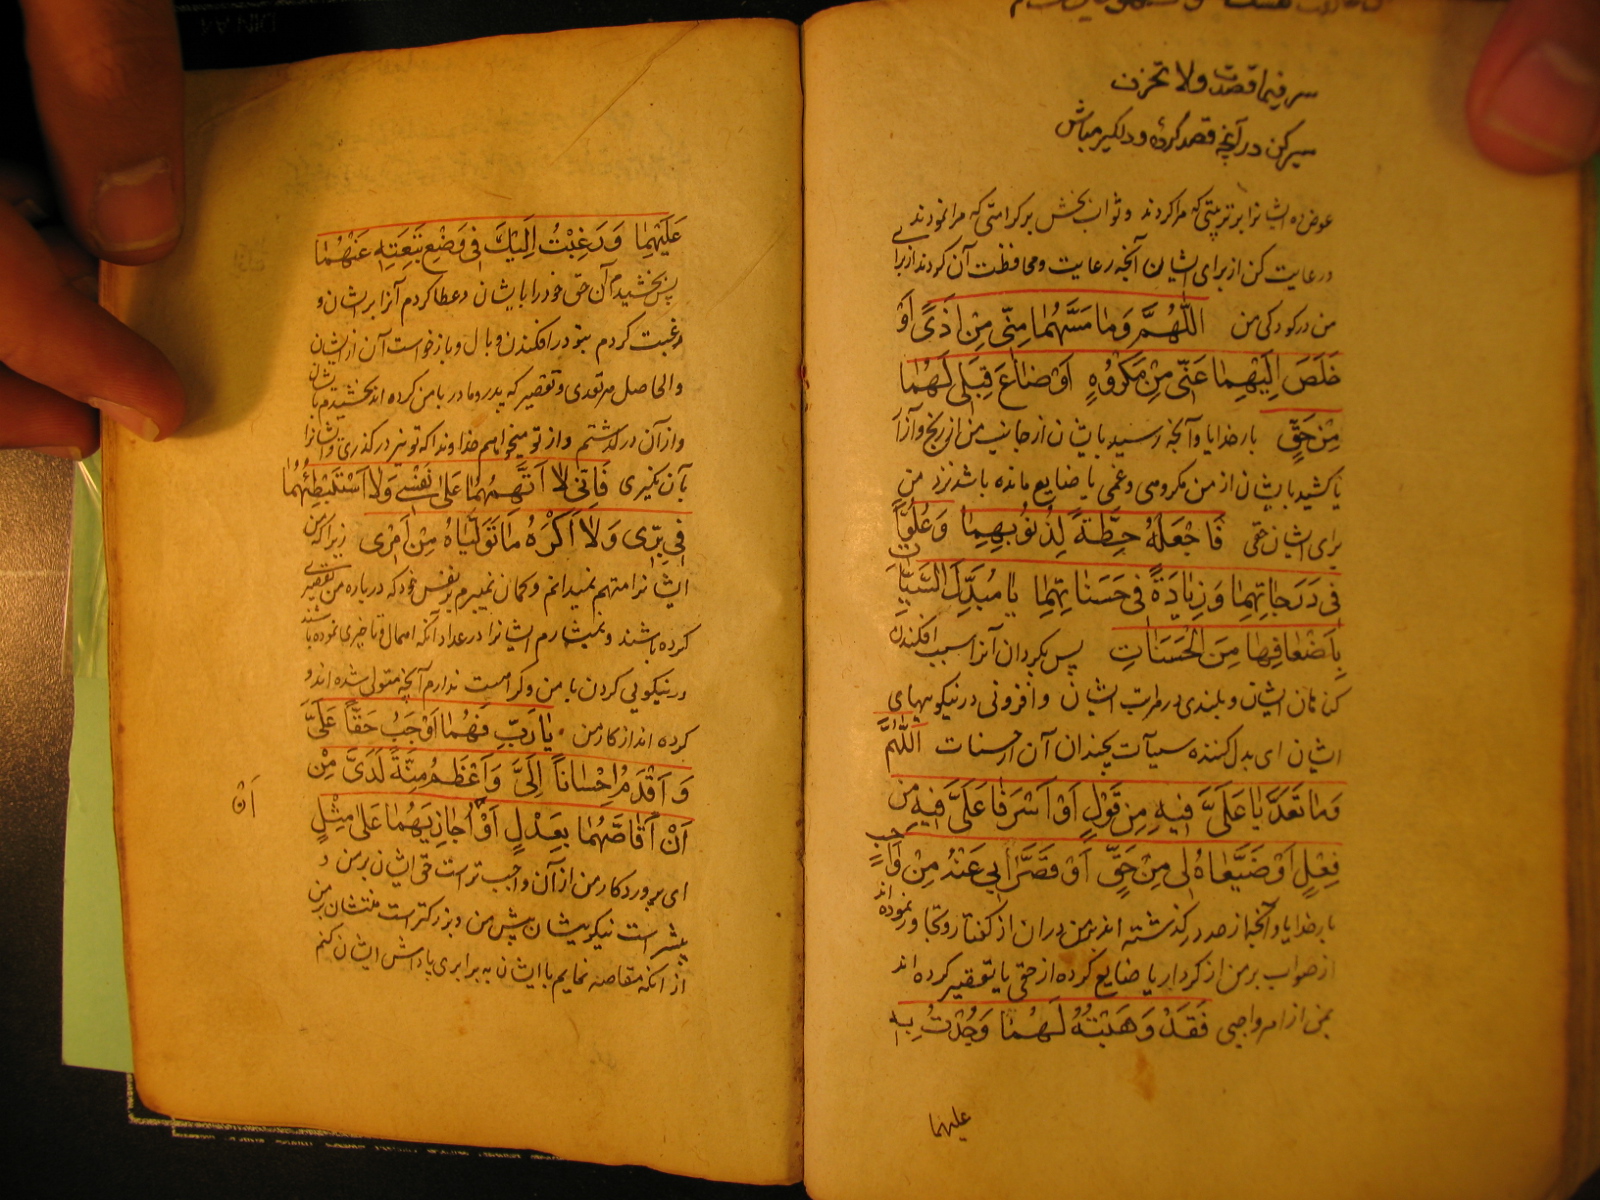 سر فیما قصدت ولا تحزن
سیر کن در آنچه قصد کردهٔ و دلگیر مباش
عوض ده ایشانرا بر تربیتی که مرا کردند و ثواب بخش بر کرامتی که مرا نمودند
و رعایت کن از برای ایشان آنچه رعایت و محافظت آن کردند از برای
من در کودکی من اَللّٰهُمَّ وَمٰا مَسَّهُمٰا مِنّی مِنْ اَذیً اَوْ
خَلَصَ اِلَیْهِمٰا عَنّی مِنْ مَکْرُوهٍ اَوْ ضٰاعَ قِبَلی لَهُمٰا
مِنْ حَقٍّ بار خدایا و آنچه رسید بایشان از جانب من از رنج و آزار
یا کشید بایشان از من مکروهی و غمی یا ضایع مانده باشد نزد من
برای ایشان حقی فَاجْعَلْهُ حِطَّةً لِذُنُوبِهِمٰا وَعُلُوّاً
فی دَرَجٰاتِهِمٰا وَزِیٰادَةً فی حَسَنٰاتِهِمٰا یٰا مُبَدِّلَ السَّیِّئٰاتِ
بِاَضْعٰافِهٰا مِنَ الْحَسَنٰاتِ پس بگردان آنرا سبب افکندن
گناهان ایشان و بلندی در مراتب ایشان و افزونی در نیکوییهای
ایشان ای بدل کننده سیآت بچندان آن از حسنات اَللّٰهُمَّ
وَمٰا تَعَدَّیٰا عَلَیَّ فیهِ مِنْ قَوْلٍ اَوْ اَسْرَفٰا عَلَیَّ فیهِ مِنْ
فِعْلٍ اَوْ ضَیَّعٰاهُ لی مِنْ حَقٍّ اَوْ قَصَّرٰا بی عَنْهُ مِنْ وٰاجِبٍ
بار خدایا و آنچه از حد در گذشته اند بر من در آن از گفتار و تجاوز نموده اند
از صواب بر من از کردار یا ضایع کرده از حقی یا تقصیر کرده اند
بمن از امر واجبی فَقَدْ وَهَبْتُهُ لَهُمٰا وَجُدْتُ بِهِ
علیهما
عَلَیْهِمٰا وَرَغِبْتُ اِلَیْکَ فی وَضْعِ تَبِعَتِهِ عَنْهُمٰا
پس بخشیدم آن حق خود را بایشان و عطا کردم آنرا بر ایشان و
رغبت کردم بتو در افکندن وبال و بازخواست آن از ایشان
والحاصل هر تعدی و تقصیر که پدر و مادر با من کرده اند بخشیدم بایشان
و از آن در گذشتم و از تو میخواهم خداوندا که تو نیز در گذری و ایشانرا
بآن نگیری فَاِنّی لٰا اَتَّهِمُهُمٰا عَلیٰ نَفْسی وَلٰا اَسْتَبْطِئُهُمٰا
فی بِرّی وَلٰا اَکْرَهُ مٰا تَوَلَّیٰاهُ مِنْ اَمْری زیرا که من
ایشانرا متهم نمیدانم و گمان نمیبرم بر نفس خود که درباره من تقصیری
کرده باشند و نمیشمارم ایشانرا در عداد آنکه اهمال و تاخیری نموده باشند
در نیکویی کردن با من و کراهت ندارم آنچه متولی شده اند و
کرده اند از کار من یٰا رَبِّ فَهُمٰا اَوْجَبُ حَقّاً عَلَیَّ
وَ اَقْدَمُ اِحْسٰاناً اِلَیَّ وَ اَعْظَمُ مِنَّةً لَدَیَّ مِنْ
اَنْ اُقٰاصَّهُمٰا بِعَدْلٍ اَوْ اُجٰازِیَهُمٰا عَلیٰ مِثْلٍ
اَنْ
ای پروردگار من از آن واجب تر است حق ایشان بر من و
بیشتر است نیکویی ایشان پیش من و بزرگتر است منت ایشان بر من
از آنکه مقاصه نمایم با ایشان به برابری یا پاداش ایشان کنم